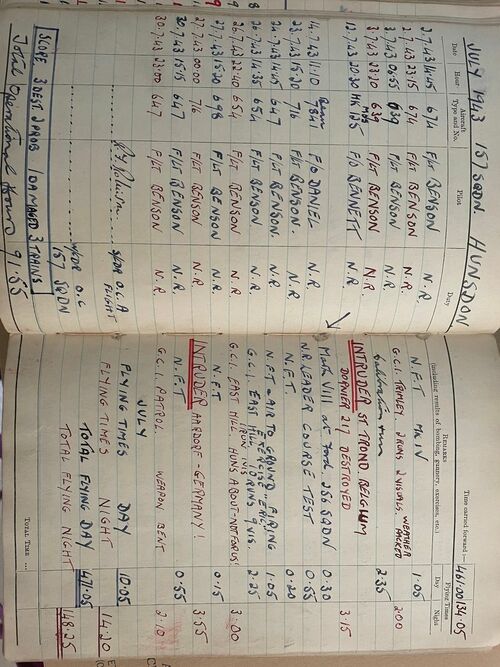 JULY 1943 157 SQDN HUNSDON
Time carried forward :— 461.00 134.05
Date Hour Aircraft Type and No. Pilot Duty REMARKS (including results of bombing, gunnery, exercises, etc.) Flying Times Day Night
2.7.43 14.05 674 F/LT BENSON N.R. N.F.T MK IV 1.05
2.7.43 23.15 674 F/LT BENSON N.R. G.C.I. TRIMLEY. 2 RUNS 2 VISUALS. WEATHER PACKED 2.00
3.7.43 06.55 639 F/LT BENSON N.R. Calibration run 2.35
3.7.43 23.10 639 F/LT BENSON N.R. INTRUDER ST TROND BELGIUM 3.15
DORNIER 217 DESTROYED
12.7.43 20.30 HK 125 F/O BENNETT N.R. Mark VIII at Ford 256 SQDN 0.30
14.7.43 11.10 7841 F/O DANIEL N.R. N.R LEADER COURSE TEST 0.55
23.7.43 15.20 716 F/LT BENSON. N.R. N.F.T. 0.20
24.7.43 14.05 647 F/LT BENSON. N.R. N.F.T - AIR TO GROUND FIRING 1.05
EXERCISE
26.7.43 14.35 654 F/LT BENSON N.R. G.C.I. EAST HILL 10 RUNS 9 VIS. 2.25
1 RUN INVIS
26.7.43 22.40 654 F/LT BENSON N.R. G.C.I. EAST HILL HUNS ABOUT-NOT FOR US! 3.00
27.7.43 15.20 698 F/LT BENSON N.R. N.F.T 0.15
27.7.43 00.00 716 F/LT BENSON N.R. INTRUDER AARDORF - GERMANY! 3.55
30.7.43 15.15 647 F/LT BENSON N.R. N.F.T 0.55
30.7.43 23.00 647 F/LT BENSON N.R. G.C.I. PATROL WEAPON BENT 2.10
S/LDR O.C A FLIGHT
JULY
FLYING TIMES DAY 10.05
FLYING TIMES NIGHT 14.20
W/CDR O.C 157 SQDN
TOTAL FLYING DAY 471.05
TOTAL FLYING NIGHT 148.25
SCORE 3 DEST 2 PROBS 1 DAMAGED 3 TRAINS
Total Operational Hours 91.55
TOTAL TIME ...